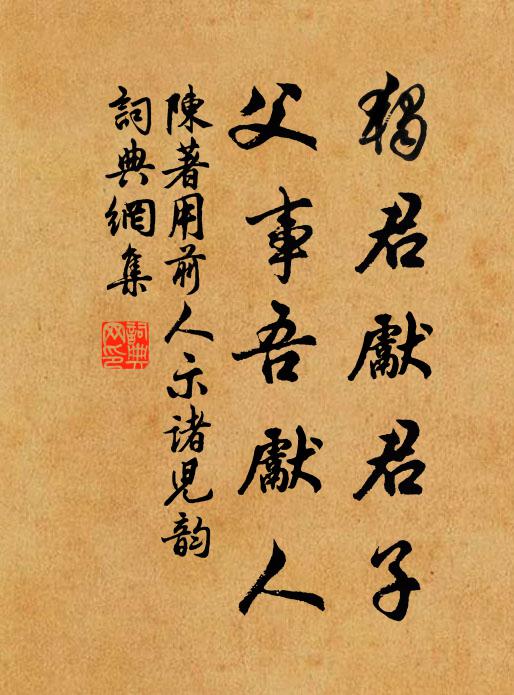 獨君獻君子
父事吾獻人
陳著用前人示諸兒韵
詞典網集
詞典网印